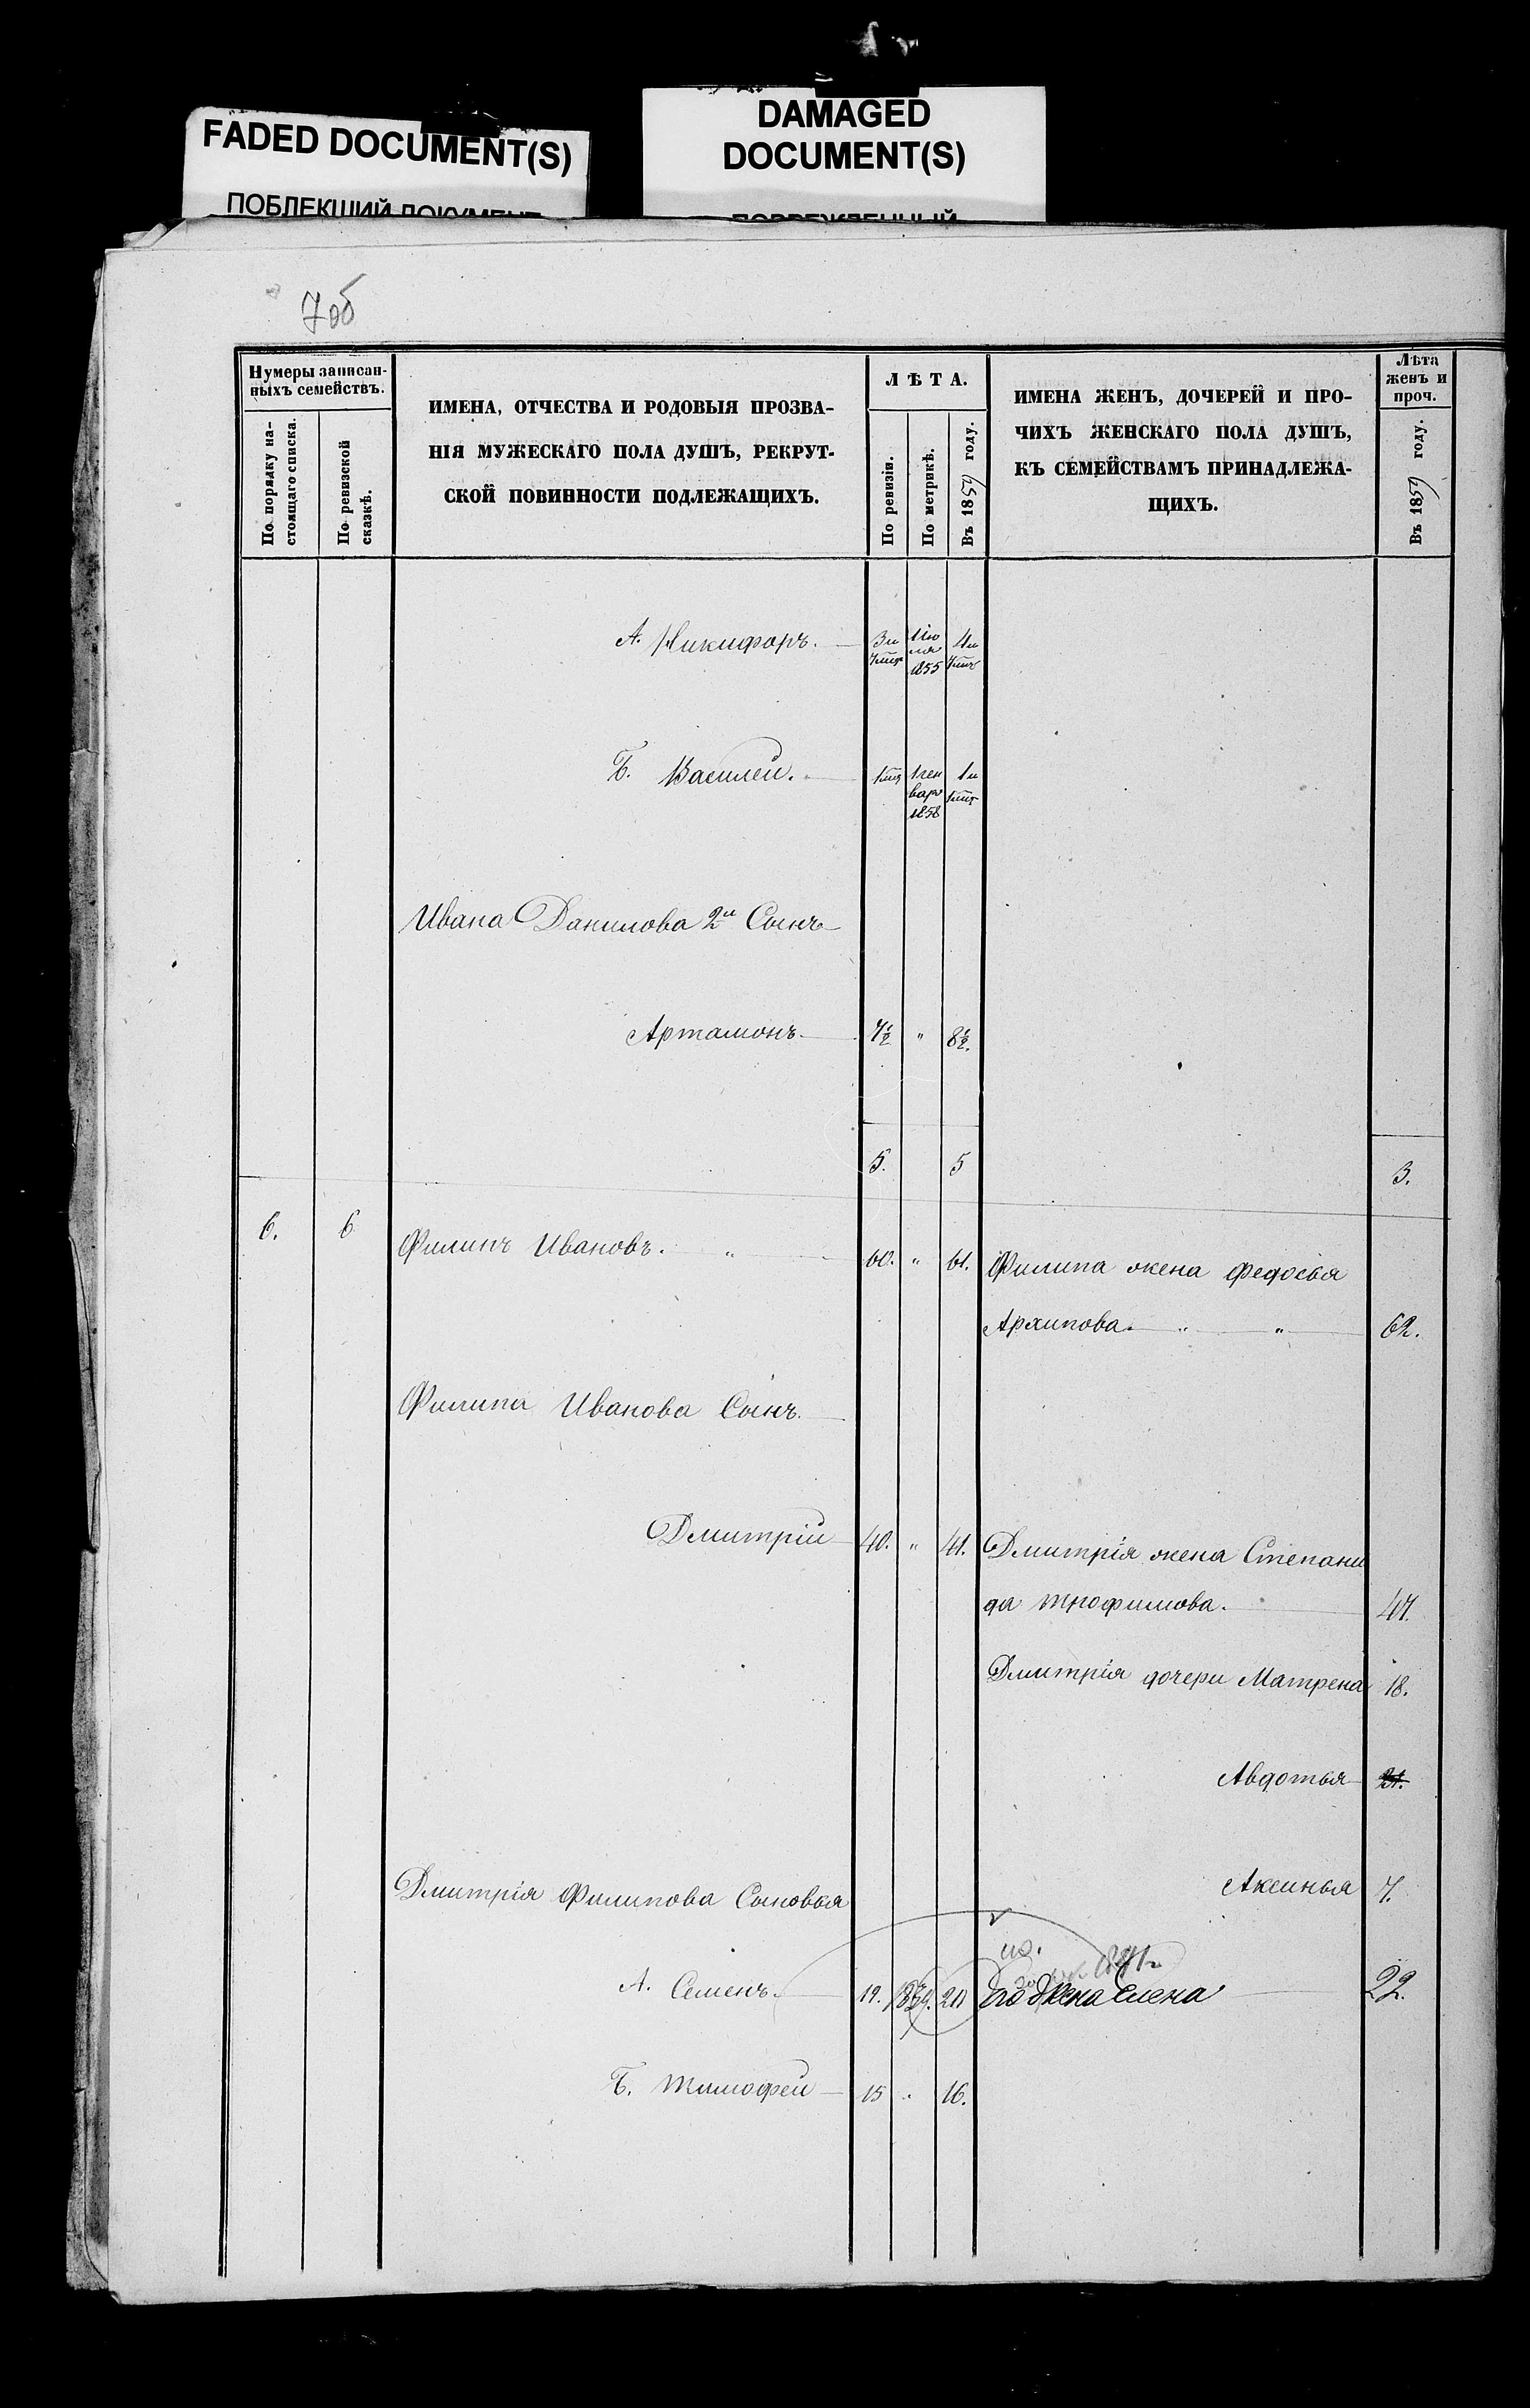 FADED DOCUMENT(S)
ПОБЛЕКШИЙ ДОКУМЕНТ
DAMAGED
DOCUMENT(S)
ПОВРЕЖДЕННЫЙ
7об
Нумеры записан-
ныхъ семействъ.
По порядку на-
стоящаго списка.
По ревизской
сказкѣ.
ИМЕНА, ОТЧЕСТВА И РОДОВЫЯ ПРОЗВА-
НІЯ МУЖЕСКАГО ПОЛА ДУШЪ, РЕКРУТ-
СКОЙ ПОВИННОСТИ ПОДЛЕЖАЩИХЪ.
ЛѢТА.
По ревизіи.
По метрикѣ.
Въ 1859 году.
ИМЕНА ЖЕНЪ, ДОЧЕРЕЙ И ПРО-
ЧИХЪ ЖЕНСКАГО ПОЛА ДУШЪ,
КЪ СЕМЕЙСТВАМЪ ПРИНАДЛЕЖА-
ЩИХЪ.
Лѣта
женъ и
проч.
Въ 1859 году.
А. Никифоръ. 3и 1855 4и
Б. Василей. 1ген варя 1858 1и
Ивана Данилова 2й Сынъ
Артамонъ 7½ " 8½.
5. 5 3.
6. 6 Филипъ Ивановъ. " 60. " 61. Филипа жена Федосья
Архипова. " " 62.
Филипа Иванова Сынъ.
Дмитрій 40. " 41. Дмитрія жена Степани
да Трофимова. 47.
Дмитрія дочери Матрена 18.
Авдотья
Дмитрія Филипова Сыновья
Аксинья 7.
А. Семенъ. 19. 1839. 20 его жена Елена 22.
Б. Тимофей 15 " 16.